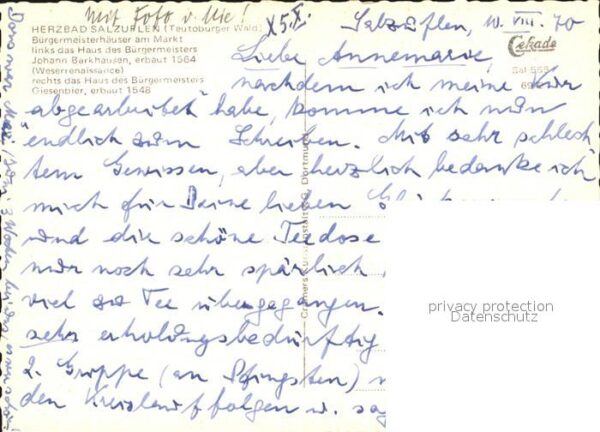 Mit Foto v. Mie!
X 5.X.
HERZBAD SALZUFLEN (Teutoburger Wald)
Bürgermeisterhäuser am Markt
links das Haus des Bürgermeisters
Johann Barkhausen, erbaut 1564
(Weserrenaissance)
rechts das Haus des Bürgermeisters
Giesenbier, erbaut 1548
Cekade
Sal 553
Salzuflen, 10. VIII. 70
Liebe Annemarie,
nachdem ich meine Kur
"abgearbeitet" habe, komme ich nun
endlich zum Schreiben. Mit sehr schlech
tem Gewissen, aber herzlich bedanke ich
mich für Deine lieben
und die schöne Teedose
mir noch sehr spärlich
viel zu Tee übergegangen.
sehr erholungsbedürftig
2. Grippe (an Pfingsten)
den Kreislauffolgen u. sag
privacy protection
Datenschutz